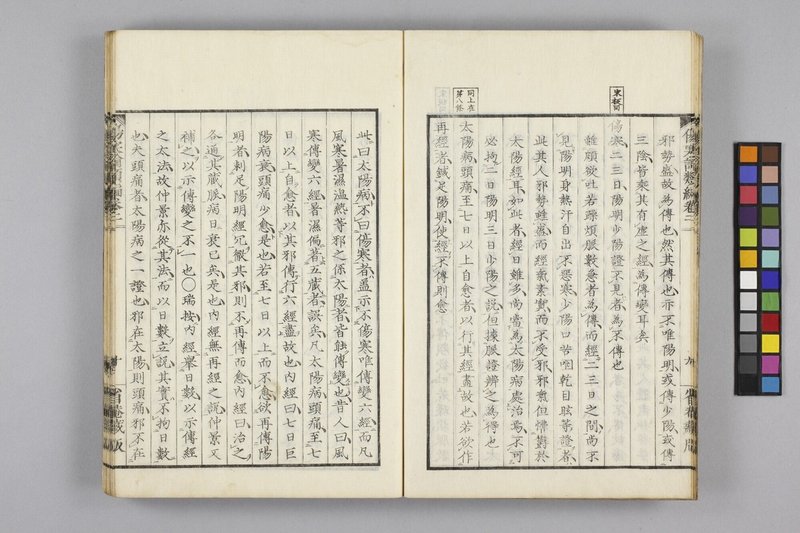 邪勢盛故為傳也然其傳也亦不唯陽明或傳少陽或傳
三陰皆乘其有虛之經為傳變耳矣
傷寒二三日陽明少陽證不見者為不傳也
雖頤欲吐若躁煩脈數急者為傳而經二三日之間尚不
見陽明身熱汗自出不惡寒少陽口苦咽乾目眩等證者
此其人邪勢雖盛而經氣素實而不受邪邪氣但怫欝於
太陽經耳如此者經日雖多尚當為太陽病處治焉不可
必拘二日陽明三日少陽之說但據脈證辨之為得也
太陽病頭痛至七日以上自愈者以行其經盡故也若欲作
再經者鍼足陽明使經不傳則愈
此曰太陽病不曰傷寒者蓋示不傷寒唯傳變六經而凡
風寒暑濕溫熱等邪之係太陽者皆能傳變也昔人曰風
寒傳變六經暑濕偏著五藏者誤矣凡太陽病頭痛至七
日以上自愈者以其邪傳行六經盡故也內經曰七日巨
陽病衰頭痛少愈是也若至七日以上而不愈欲再傳陽
明者刺足陽明經穴瀉其邪則不再傳而愈內經曰治之
各通其藏脈病日衰已矣是也內經無再經之說仲景又
補之以示傳變之不一也○瑞按內經舉日數以示傳經
之太法故仲景亦從其法而以日數立說其實不拘日數
也夫頭痛者太陽病之一證也邪在太陽則頭痛邪不在
宋板同
同上在
第八條
傷寒論類編卷二
九
省菴藏版